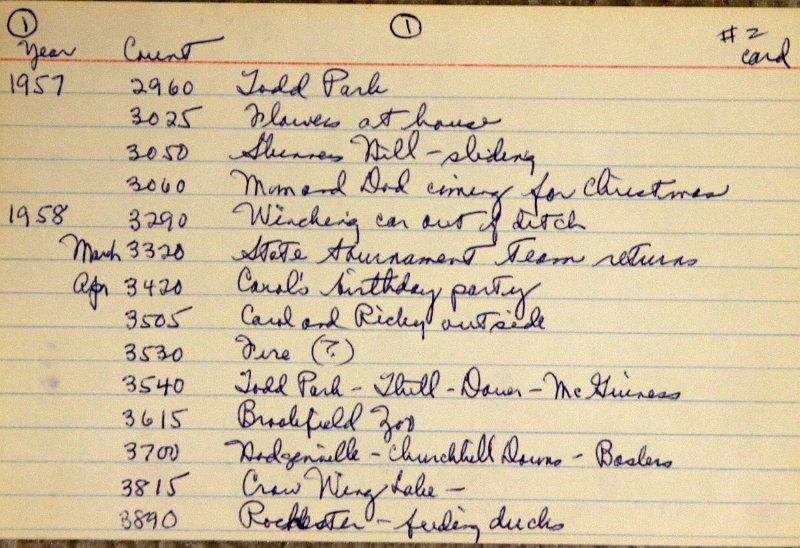 ① ① #2
Year Count card
1957 2960 Todd Park
3025 Flowers at house
3050 Skinners Hill - sliding
3060 Mom and Dad coming for Christmas
1958 3290 Winching car out of ditch
March 3320 State tournament Team returns
Apr 3420 Carol's birthday party
3505 Carol and Ricky outside
3530 Fire (?)
3540 Todd Park - Thill - Dover - McGuiness
3615 Brookfield Zoo
3700 Hodgenville - Churchhill Downs - Baslers
3815 Crow Wing Lake -
3890 Rochester - feeding ducks